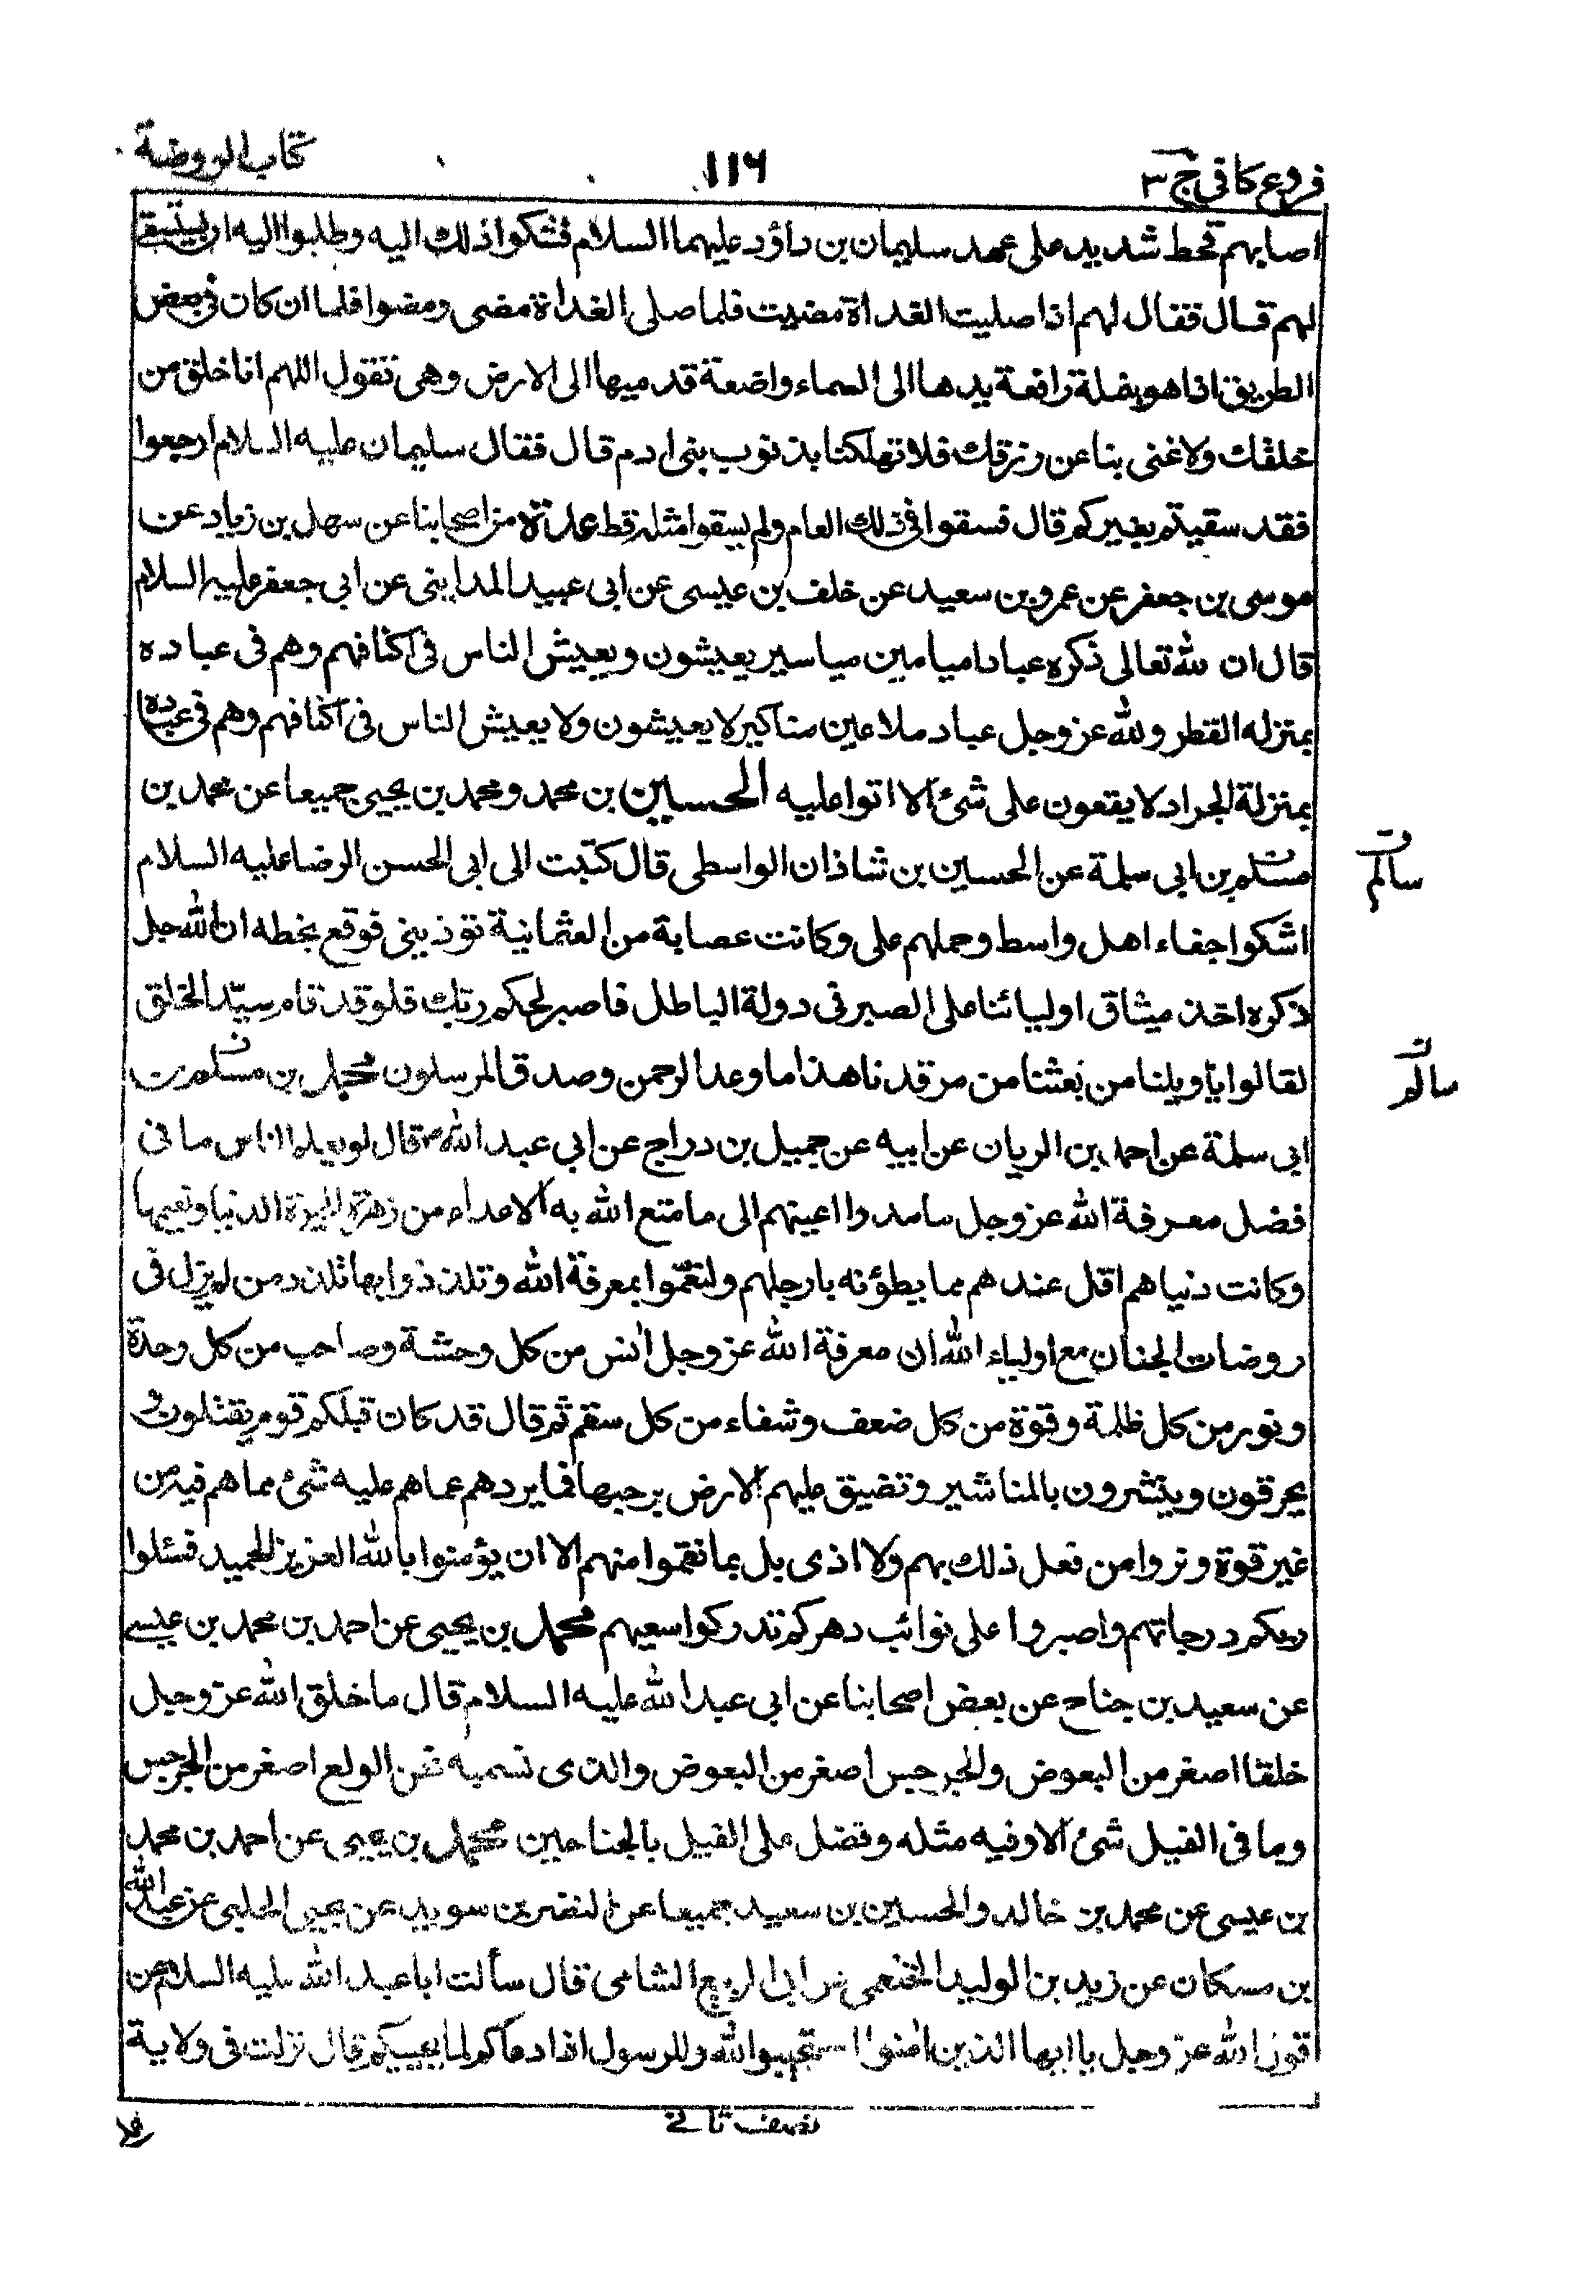 فروع كافى ج ٣
١١٦
كتاب الروضة
اصابهم قحط شديد على عهد سليمان بن داؤد عليهما السلام فشكوا ذلك اليه وطلبوا اليه ان يستسقى
لهم قال فقال لهم اذا صليت الغداة مضيت فلما صلى الغداة مضى ومضوا فلما ان كان فى بعض
الطريق اذا هو بنملة رافعة يدها الى السماء واضعة قدميها الى الارض وهى تقول اللهم انا خلق من
خلقك ولا غنى بنا عن رزقك فلا تهلكنا بذنوب بنى ادم قال فقال سليمان عليه السلام ارجعوا
فقد سقيتم بغيركم قال فسقوا فى ذلك العام ولم يسقوا مثله قط عدة من اصحابنا عن سهل بن زياد عن
موسى بن جعفر عن عمرو بن سعيد عن خلف بن عيسى عن ابى عبيد المداينى عن ابى جعفر عليه السلام
قال ان لله تعالى ذكره عبادا ميامين مياسير يعيشون ويعيش الناس فى اكنافهم وهم فى عباده
بمنزله القطر ولله عز وجل عباد ملاعين مناكير لا يعيشون ولا يعيش الناس فى اكنافهم وهم فى عباده
بمنزلة الجراد لا يقعون على شئ الا اتوا عليه الحسين بن محمد ومحمد بن يحيى جميعا عن محمد بن
مسلم بن ابى سلمة عن الحسين بن شاذان الواسطى قال كتبت الى ابى الحسن الرضا عليه السلام
سالم
اشكوا جفاء اهل واسط وحملهم على وكانت عصابة من العثمانية تؤذينى فوقع بخطه ان الله جل
ذكره اخذ ميثاق اوليائنا على الصبر فى دولة الباطل فاصبر لحكم ربك فلو قد قام سيّد الخلق
لقالوا يا ويلنا من بعثنا من مرقدنا هذا ما وعد الرحمن وصدق المرسلون محمد بن مسلم بن
سالم
ابى سلمة عن احمد بن الريان عن ابيه عن جميل بن دراج عن ابى عبد الله ع قال لو يعلم الناس ما فى
فضل معرفة الله عز وجل ما مدوا اعينهم الى ما متع الله به الاعداء من زهرة الحيوة الدنيا ونعيمها
وكانت دنياهم اقل عندهم مما يطؤنه بارجلهم ولنعّموا بمعرفة الله وتلذذوا بها تلذذ من لم يزل فى
روضات الجنان مع اولياء الله ان معرفة الله عز وجل انس من كل وحشة وصاحب من كل وحدة
ونور من كل ظلمة وقوة من كل ضعف وشفاء من كل سقم ثم قال قد كان قبلكم قوم يقتلون و
يحرقون وينشرون بالمناشير وتضيق عليهم الارض برحبها فما يردهم عما هم عليه شئ مما هم فيه من
غير قوة وتروا من فعل ذلك بهم ولا اذى بل بما نقموا منهم الا ان يؤمنوا بالله العزيز الحميد فسئلوا
ربكم درجاتهم واصبروا على نوائب دهركم تدركوا سعيهم محمد بن يحيى عن احمد بن محمد بن عيسى
عن سعيد بن جناح عن بعض اصحابنا عن ابى عبد الله عليه السلام قال ما خلق الله عز وجل
خلقا اصغر من البعوض والجرجس اصغر من البعوض والذى نسميه نحن الولع اصغر من الجرجس
وما فى الفيل شئ الا وفيه مثله وفضل على الفيل بالجناحين محمد بن يحيى عن احمد بن محمد
بن عيسى عن محمد بن خالد والحسين بن سعيد جميعا عن النضر بن سويد عن يحيى الحلبى عن عبد الله
بن مسكان عن زيد بن الوليد الخثعمى عن ابى الربيع الشامى قال سألت ابا عبد الله عليه السلام عن
قول الله عز وجل يا ايها الذين امنوا استجيبوا لله وللرسول اذا دعاكم لما يحييكم قال نزلت فى ولاية
نصف ثانى